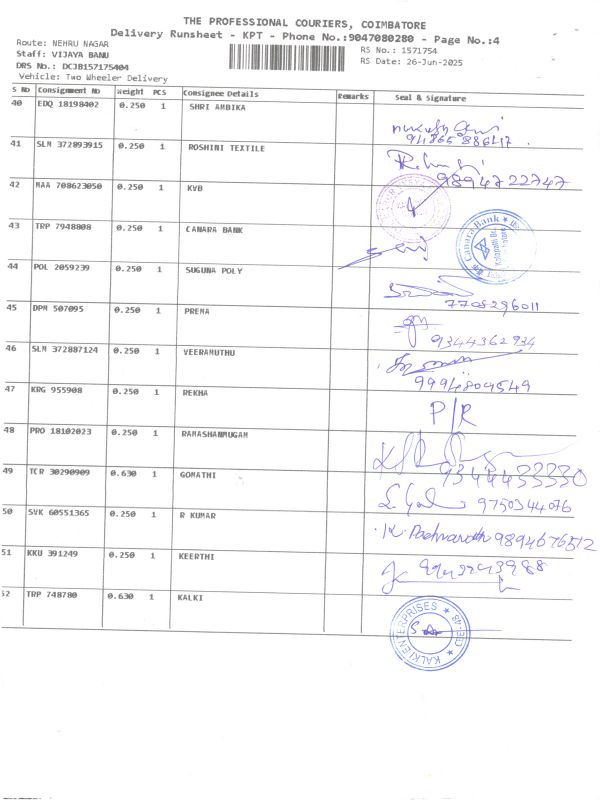 THE PROFESSIONAL COURIERS, COIMBATORE
Delivery Runsheet - KPT - Phone No.:9047080280 - Page No.:4
Route: NEHRU NAGAR
RS No.: 1571754
Staff: VIJAYA BANU
RS Date: 26-Jun-2025
DRS No: DCJB157175404
Vehicle: Two Wheeler Delivery
S No Consignment No Weight PCS Consignee Details Remarks Seal & Signature
40 EDQ 18198402 0.250 1 SHRI AMBIKA
41 SLM 372893915 0.250 1 ROSHINI TEXTILE
9894722747
42 MAA 708623050 0.250 1 KVB
43 TRP 7948808 0.250 1 CANARA BANK
Canara Bank
44 POL 2059239 0.250 1 SUGUNA POLY
7708296011
45 DPM 507095 0.250 1 PREMA
9344362934
46 SLM 372887124 0.250 1 VEERAMUTHU
9994809549
47 KRG 955908 0.250 1 REKHA
P/R
48 PRO 18102023 0.250 1 RAMASHANMUGAM
49 TCR 30290909 0.630 1 GOMATHI
9750344076
50 SVK 60551365 0.250 1 R KUMAR
9894676512
51 KKU 391249 0.250 1 KEERTHI
52 TRP 748780 0.630 1 KALKI
KALKI ENTERPRISES